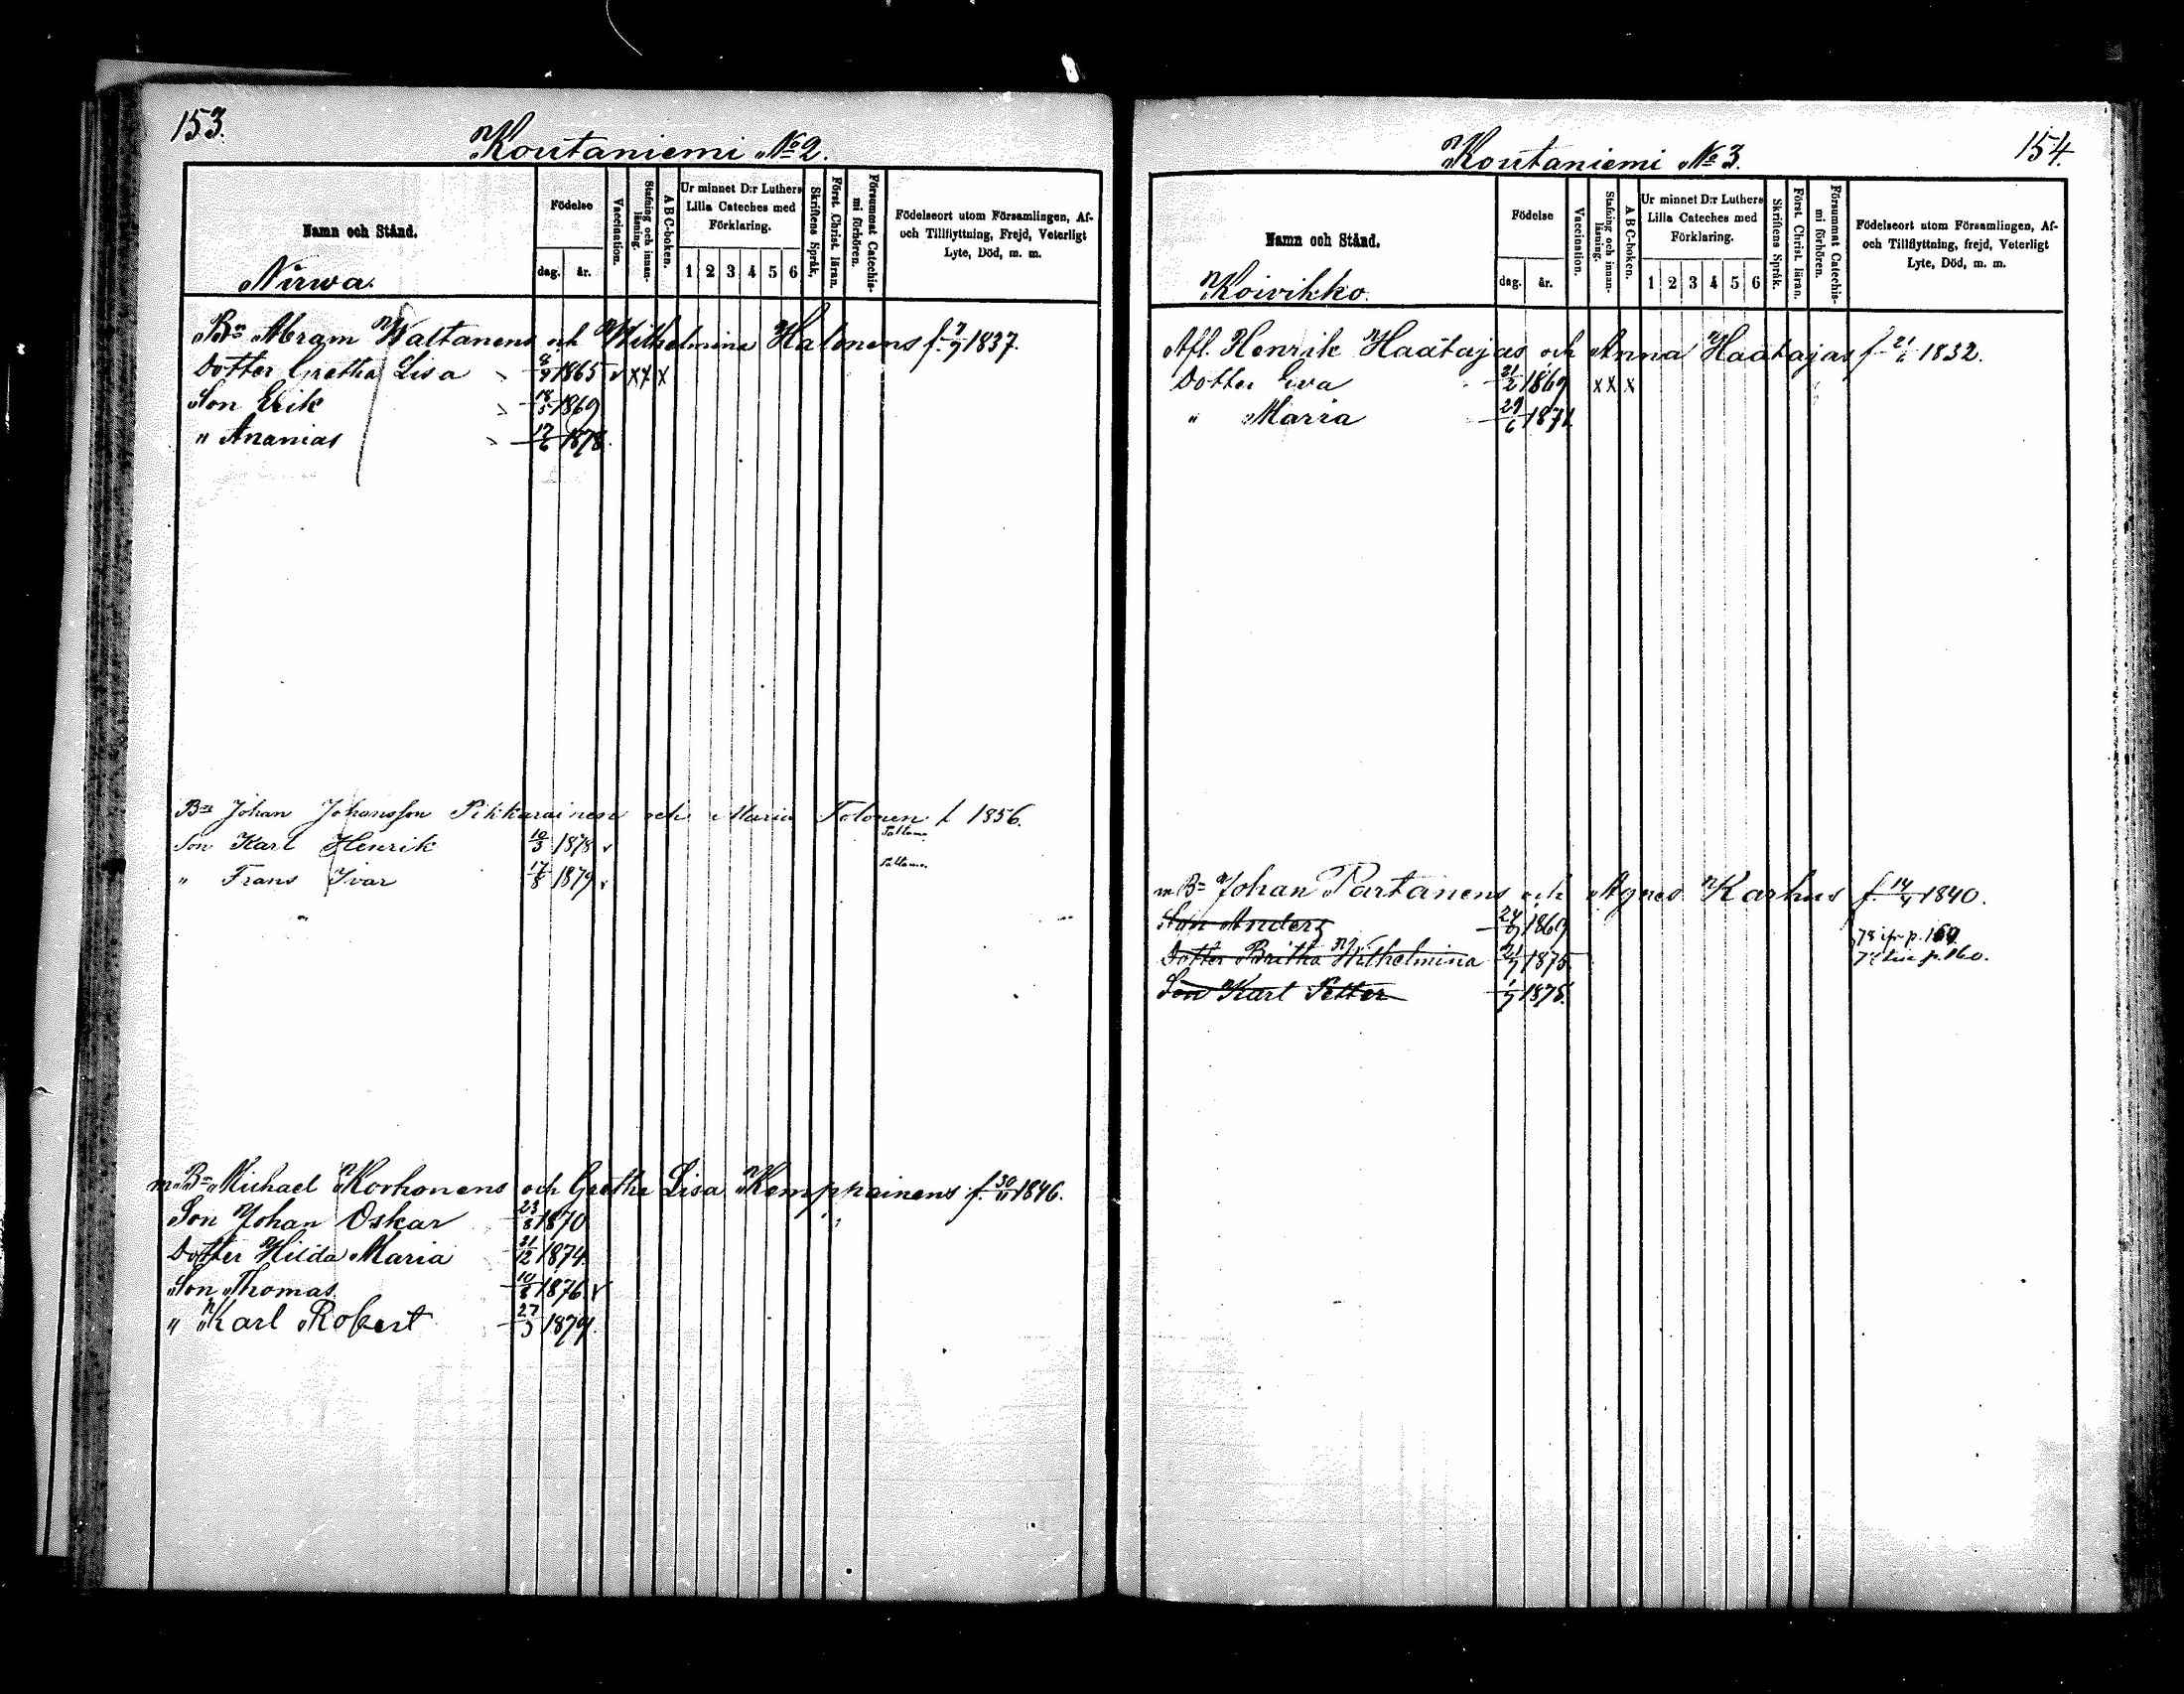 153.
Koutaniemi № 2.
Namn och Stånd.
Nirwa.
Födelse
dag. år.
Vaccination.
Stafning och innan-läsning.
A B C-boken.
Ur minnet D:r Luthers Lilla Cateches med Förklaring.
1 2 3 4 5 6
Skriftens Språk.
Först. Christ. läran.
Försummat Catechis-mi förhören.
Födelseort utom Församlingen, Af- och Tillflyttning, Frejd, Veterligt Lyte, Död, m. m.
Bn Abram Waltanens och Wilhelmina Halonens f. 7/9 1837.
Dotter Gretha Lisa 8/9 1865 v x x x
Son Erik 18/5 1869
" Ananias 17/6 1878.
Bn Johan Johansson Pikkarainen och Maria Tolonen f 1856.
Son Karl Henrik 10/3 1878 v Paltamo
" Frans Ivar 17/8 1879 v Paltamo.
m Bn Michael Korhonens och Gretha Lisa Kemppainens f. 30/11 1846.
Son Johan Oskar 23/8 1870
Dotter Hilda Maria 21/12 1874.
Son Thomas 10/8 1876 v
" Karl Robert 27/3 1879.
154.
Koutaniemi № 3.
Namn och Stånd.
Koivikko.
Födelse
dag. år.
Vaccination.
Stafning och innan-läsning.
A B C-boken.
Ur minnet D:r Luthers Lilla Cateches med Förklaring.
1 2 3 4 5 6
Skriftens Språk.
Först. Christ. läran.
Försummat Catechis-mi förhören.
Födelseort utom Församlingen, Af- och Tillflyttning, frejd, Veterligt Lyte, Död, m. m.
Afl. Henrik Haatajas och Anna Haatajas f. 21/1 1832.
Dotter Eva 21/2 1869 x x x
" Maria 29/6 1871.
m Bn Johan Partanens och Agnes Karhus f. 14/4 1840.
Son Anders 24/9 1869
Dotter Britha Wilhelmina 21/7 1875 p. 160.
Son Karl Petter 1/7 1878.